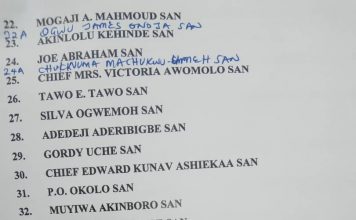 22. MOGAJI A. MAHMOUD SAN
22A OGWU JAMES ONOJA SAN
23. AKINLOLU KEHINDE SAN
24. JOE ABRAHAM SAN
24A CHUKWUMA MACHUKWU-UMEH SAN
25. CHIEF MRS. VICTORIA AWOMOLO SAN
26. TAWO E. TAWO SAN
27. SILVA OGWEMOH SAN
28. ADEDEJI ADERIBIGBE SAN
29. GORDY UCHE SAN
30. CHIEF EDWARD KUNAV ASHIEKAA SAN
31. P.O. OKOLO SAN
32. MUYIWA AKINBORO SAN